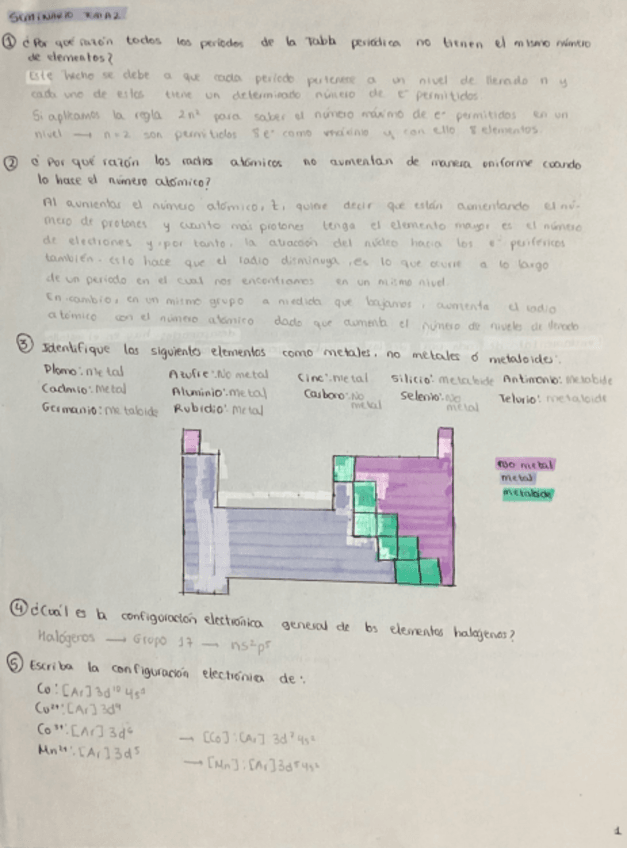 SEMINARIO TEMA 2
① ¿Por qué razón todos los periodos de la Tabla periódica no tienen el mismo número
de elementos?
Este hecho se debe a que cada periodo pertenece a un nivel de llenado n y
cada uno de estos tiene un determinado número de e⁻ permitidos.
Si aplicamos la regla 2n² para saber el número máximo de e⁻ permitidos en un
nivel → n=2 son permitidos 8e⁻ como máximo y con ello 8 elementos.
② ¿Por qué razón los radios atómicos no aumentan de manera uniforme cuando
lo hace el número atómico?
Al aumentar el número atómico, Z, quiere decir que están aumentando el nú-
mero de protones y cuanto más protones tenga el elemento mayor es el número
de electrones y, por tanto, la atracción del núcleo hacia los e⁻ periféricos
también. Esto hace que el radio disminuya, es lo que ocurre a lo largo
de un periodo en el cual nos encontramos en un mismo nivel.
En cambio, en un mismo grupo a medida que bajamos, aumenta el radio
atómico con el número atómico dado que aumenta el número de niveles de llenado
③ Identifique los siguientes elementos como metales, no metales ó metaloides:
Plomo: metal Azufre: No metal Cinc: metal Silicio: metaloide Antimonio: metaloide
Cadmio: metal Aluminio: metal Carbono: No metal Selenio: No metal Telurio: metaloide
Germanio: metaloide Rubidio: metal
no metal
metal
metaloide
④ ¿Cuál es la configuración electrónica general de los elementos halógenos?
Halógenos → Grupo 17 → ns²p⁵
⑤ Escriba la configuración electrónica de:
[Ar] 3d¹⁰
Cu²⁺: [Ar] 3d⁹
Co³⁺: [Ar] 3d⁶ → [Co]: [Ar] 3d⁷4s²
Mn²⁺: [Ar] 3d⁵ → [Mn]: [Ar] 3d⁵4s²
1